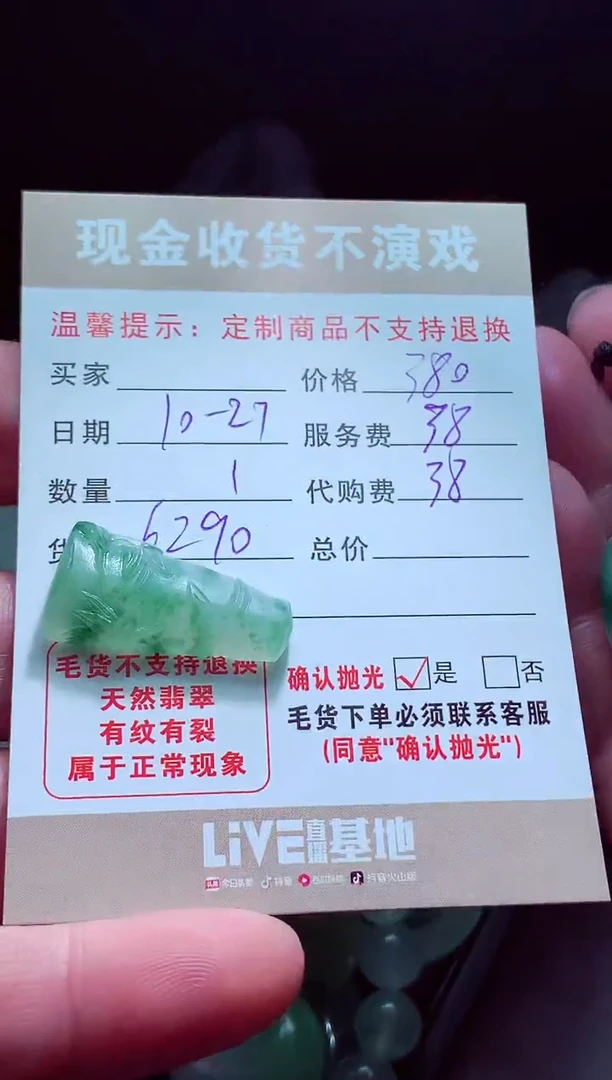 现金收货不演戏
温馨提示：定制商品不支持退换
买家 价格 380
日期 10-27 服务费 38
数量 1 代购费 38
货 6290 总价
毛货不支持退换
天然翡翠
有纹有裂
属于正常现象
确认抛光 是 否
毛货下单必须联系客服
(同意"确认抛光")
LiVE直播基地
今日头条 抖音 西瓜视频 抖音火山版